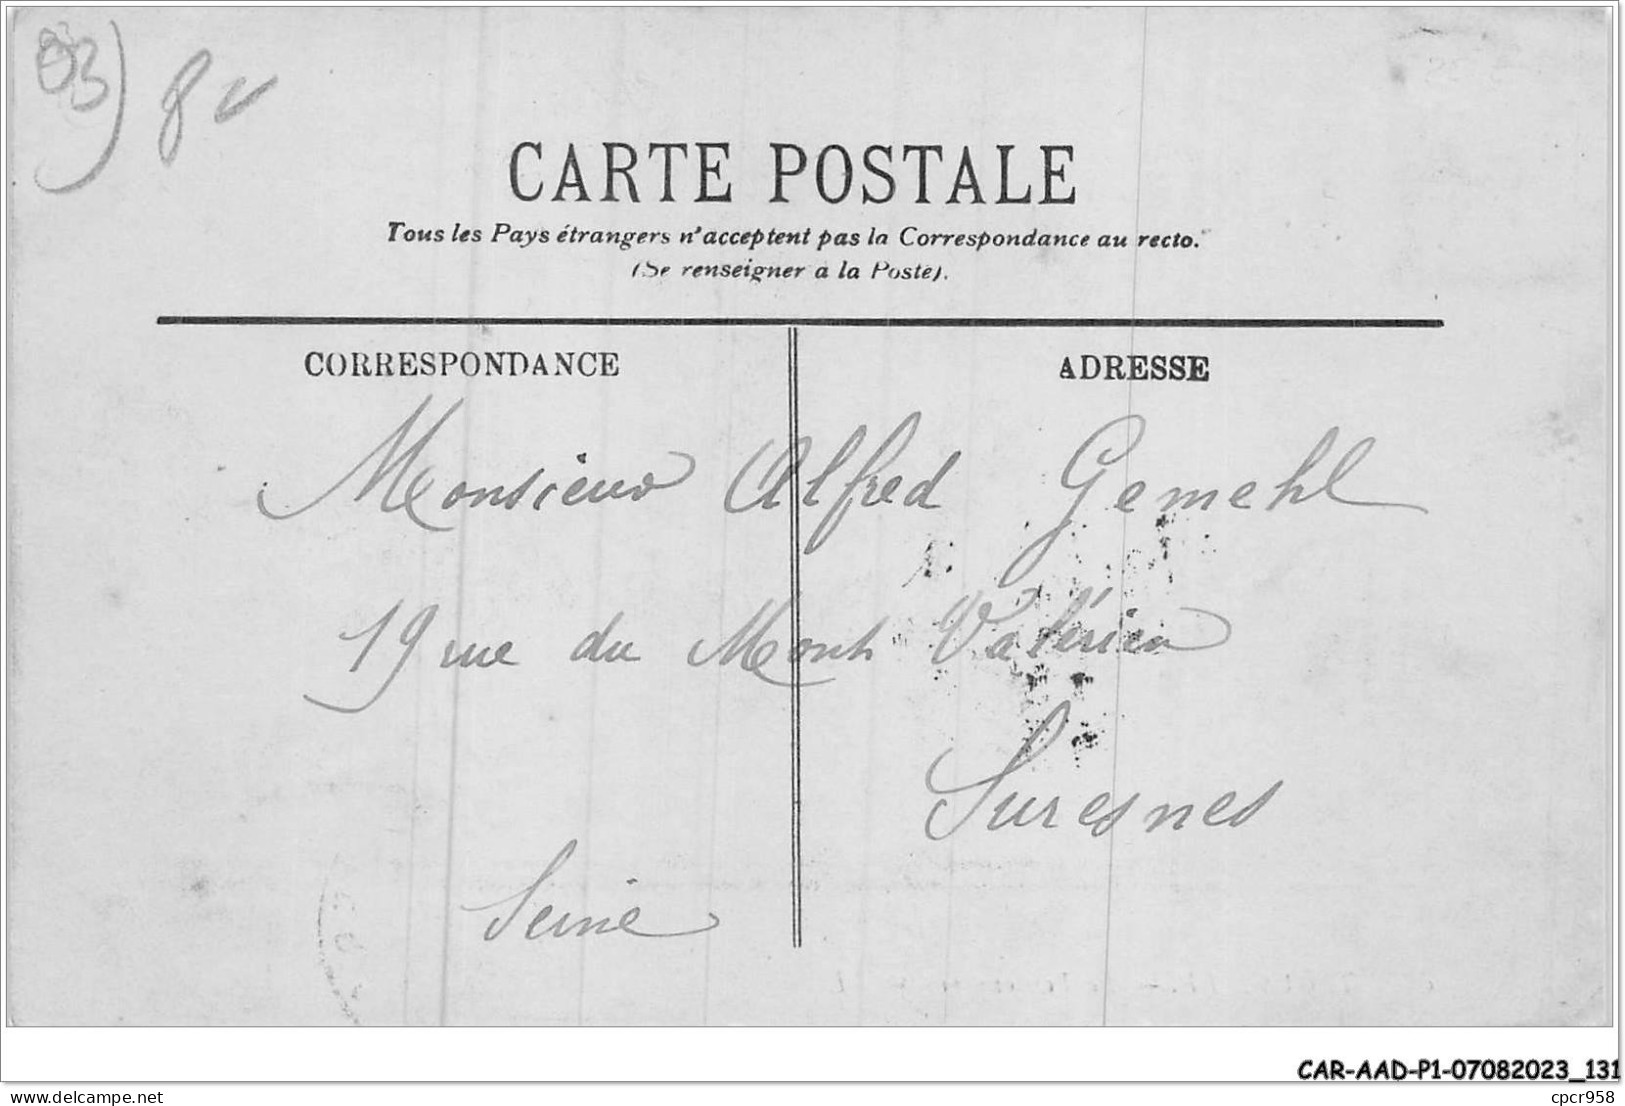 83) 8
CARTE POSTALE
Tous les Pays étrangers n'acceptent pas la Correspondance au recto.
(Se renseigner à la Poste).
CORRESPONDANCE
ADRESSE
Monsieur Alfred Gemehl
19 rue du Mont Valérien
Suresnes
Seine
CAR-AAD-P1-07082023_131
delcampe.net
cpcr958